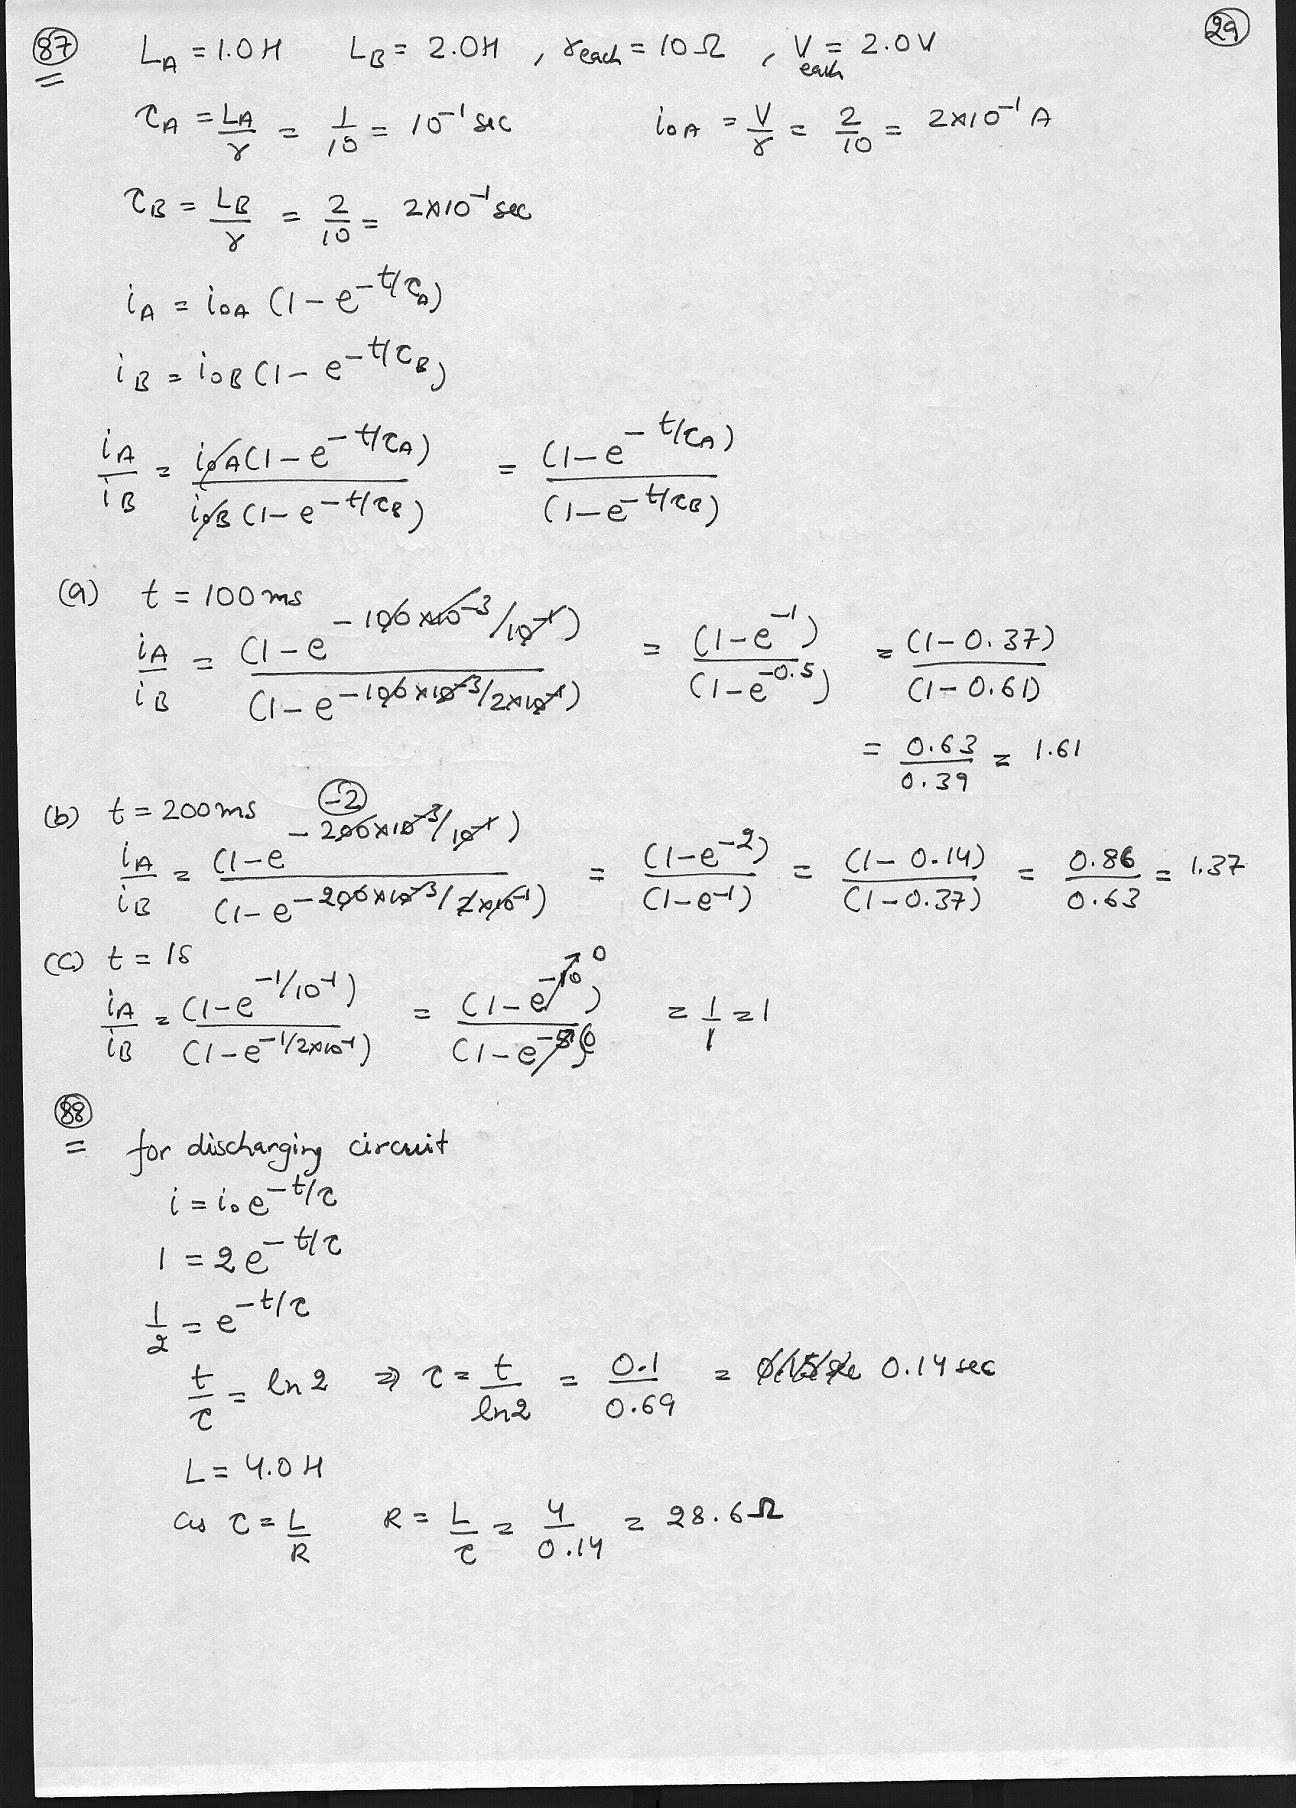 (87) L_A = 1.0H L_B = 2.0H , r_each = 10 Ω , V_each = 2.0V (29)
τ_A = L_A/r = 1/10 = 10^-1 sec i_oA = V/r = 2/10 = 2×10^-1 A
τ_B = L_B/r = 2/10 = 2×10^-1 sec
i_A = i_oA (1 - e^-t/τ_A)
i_B = i_oB (1 - e^-t/τ_B)
i_A/i_B = i_oA(1 - e^-t/τ_A) / i_oB(1 - e^-t/τ_B) = (1 - e^-t/τ_A) / (1 - e^-t/τ_B)
(a) t = 100 ms
i_A/i_B = (1 - e^-100×10^-3/10^-1) / (1 - e^-100×10^-3/2×10^-1) = (1 - e^-1) / (1 - e^-0.5) = (1 - 0.37) / (1 - 0.61)
= 0.63/0.39 = 1.61
(b) t = 200 ms (-2)
i_A/i_B = (1 - e^-200×10^-3/10^-1) / (1 - e^-200×10^-3/2×10^-1) = (1 - e^-2) / (1 - e^-1) = (1 - 0.14) / (1 - 0.37) = 0.86/0.63 = 1.37
(c) t = 1s
i_A/i_B = (1 - e^-1/10^-1) / (1 - e^-1/2×10^-1) = (1 - e^-10 → 0) / (1 - e^-5 → 0) = 1/1 = 1
(88)
for discharging circuit
i = i_o e^-t/τ
1 = 2e^-t/τ
1/2 = e^-t/τ
t/τ = ln2 ⇒ τ = t/ln2 = 0.1/0.69 = 0.14 sec
L = 4.0 H
as τ = L/R R = L/τ = 4/0.14 = 28.6 Ω